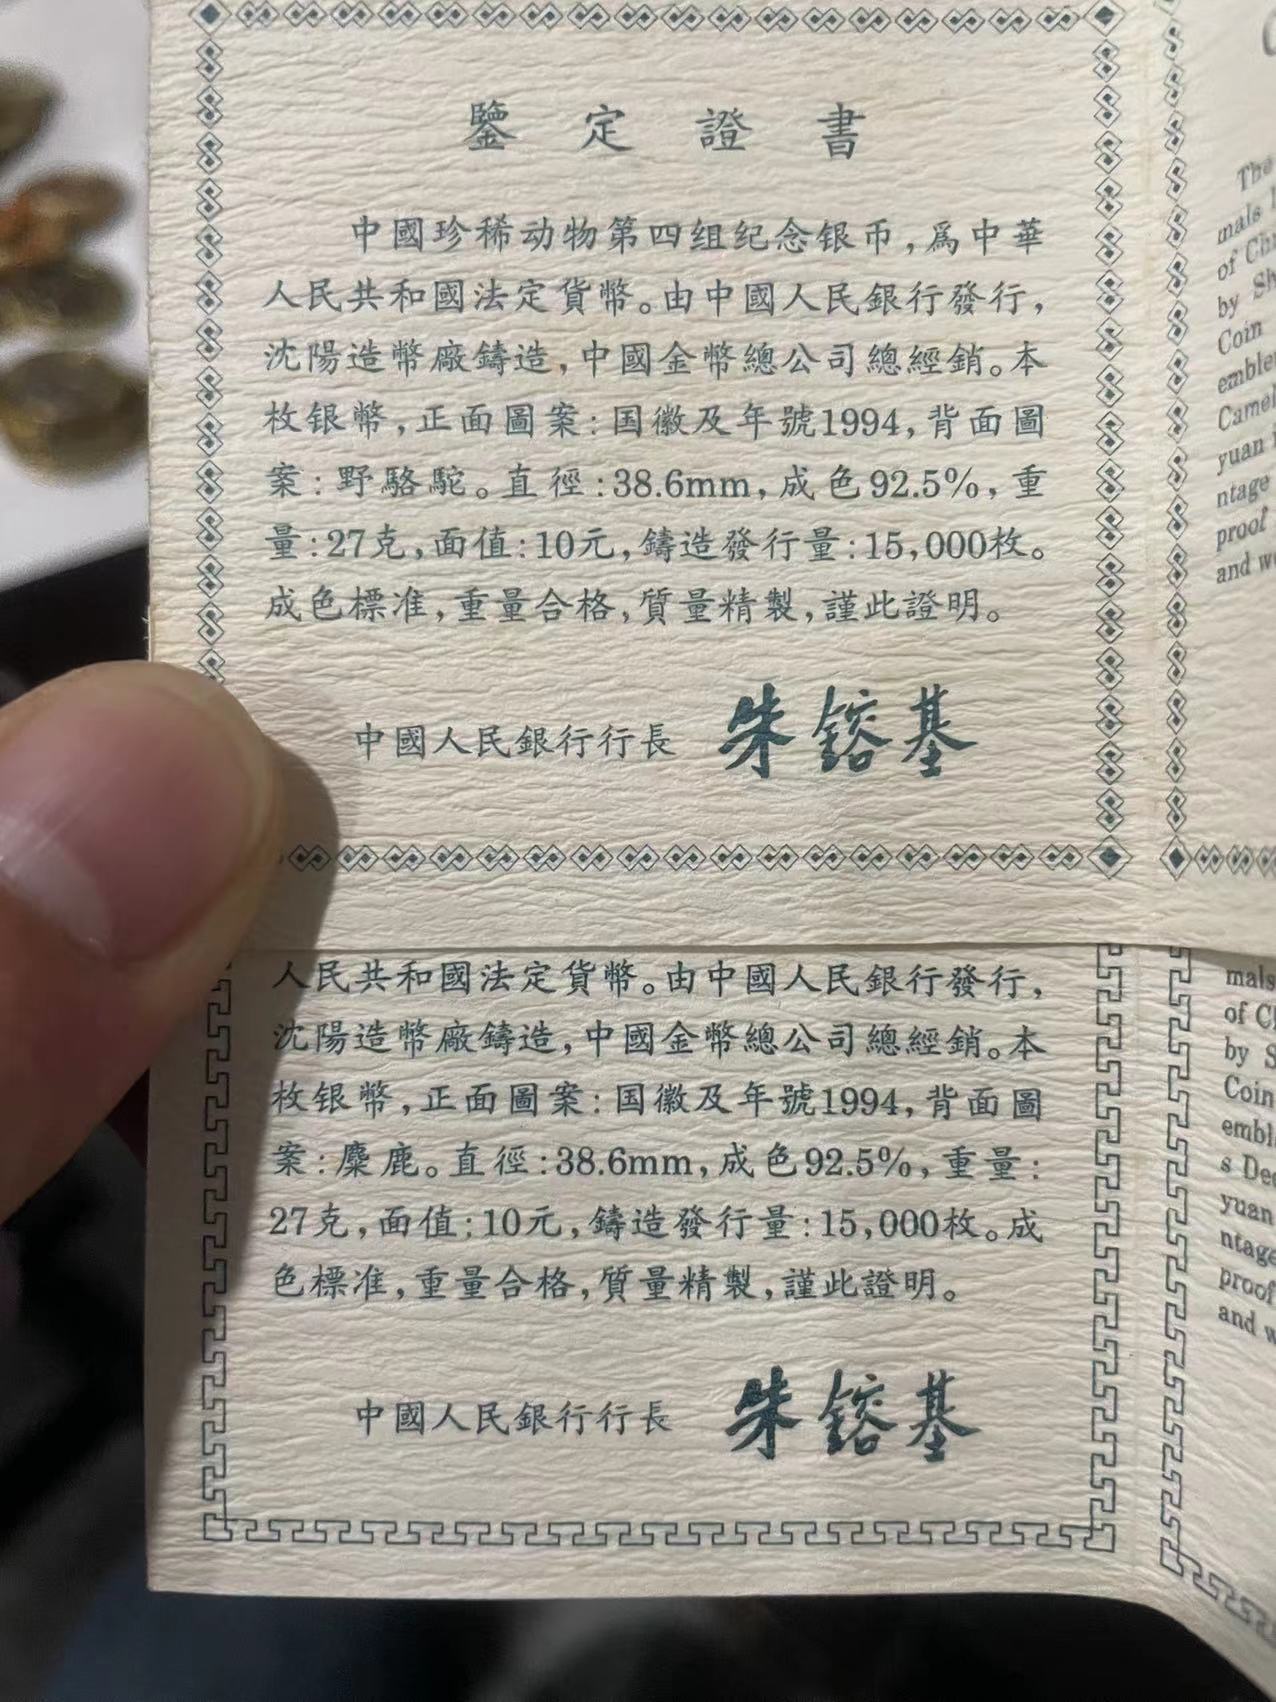 鑒定證書
中國珍稀动物第四组纪念银币,爲中華
人民共和國法定貨幣。由中國人民銀行發行,
沈陽造幣廠鑄造,中國金幣總公司總經銷。本
枚银幣,正面圖案:国徽及年號1994,背面圖
案:野駱駝。直徑:38.6mm,成色92.5%,重
量:27克,面值:10元,鑄造發行量:15,000枚。
成色標准,重量合格,質量精製,謹此證明。
中國人民銀行行長 朱鎔基
The
mals
of Ch
by Sh
Coin
emble
Camel
yuan
ntage
proof
and w
人民共和國法定貨幣。由中國人民銀行發行,
沈陽造幣廠鑄造,中國金幣總公司總經銷。本
枚银幣,正面圖案:国徽及年號1994,背面圖
案:麋鹿。直徑:38.6mm,成色92.5%,重量:
27克,面值:10元,鑄造發行量:15,000枚。成
色標准,重量合格,質量精製,謹此證明。
中國人民銀行行長 朱鎔基
mals
of C
by S
Coin
embl
s De
yuan
ntage
proof
and w